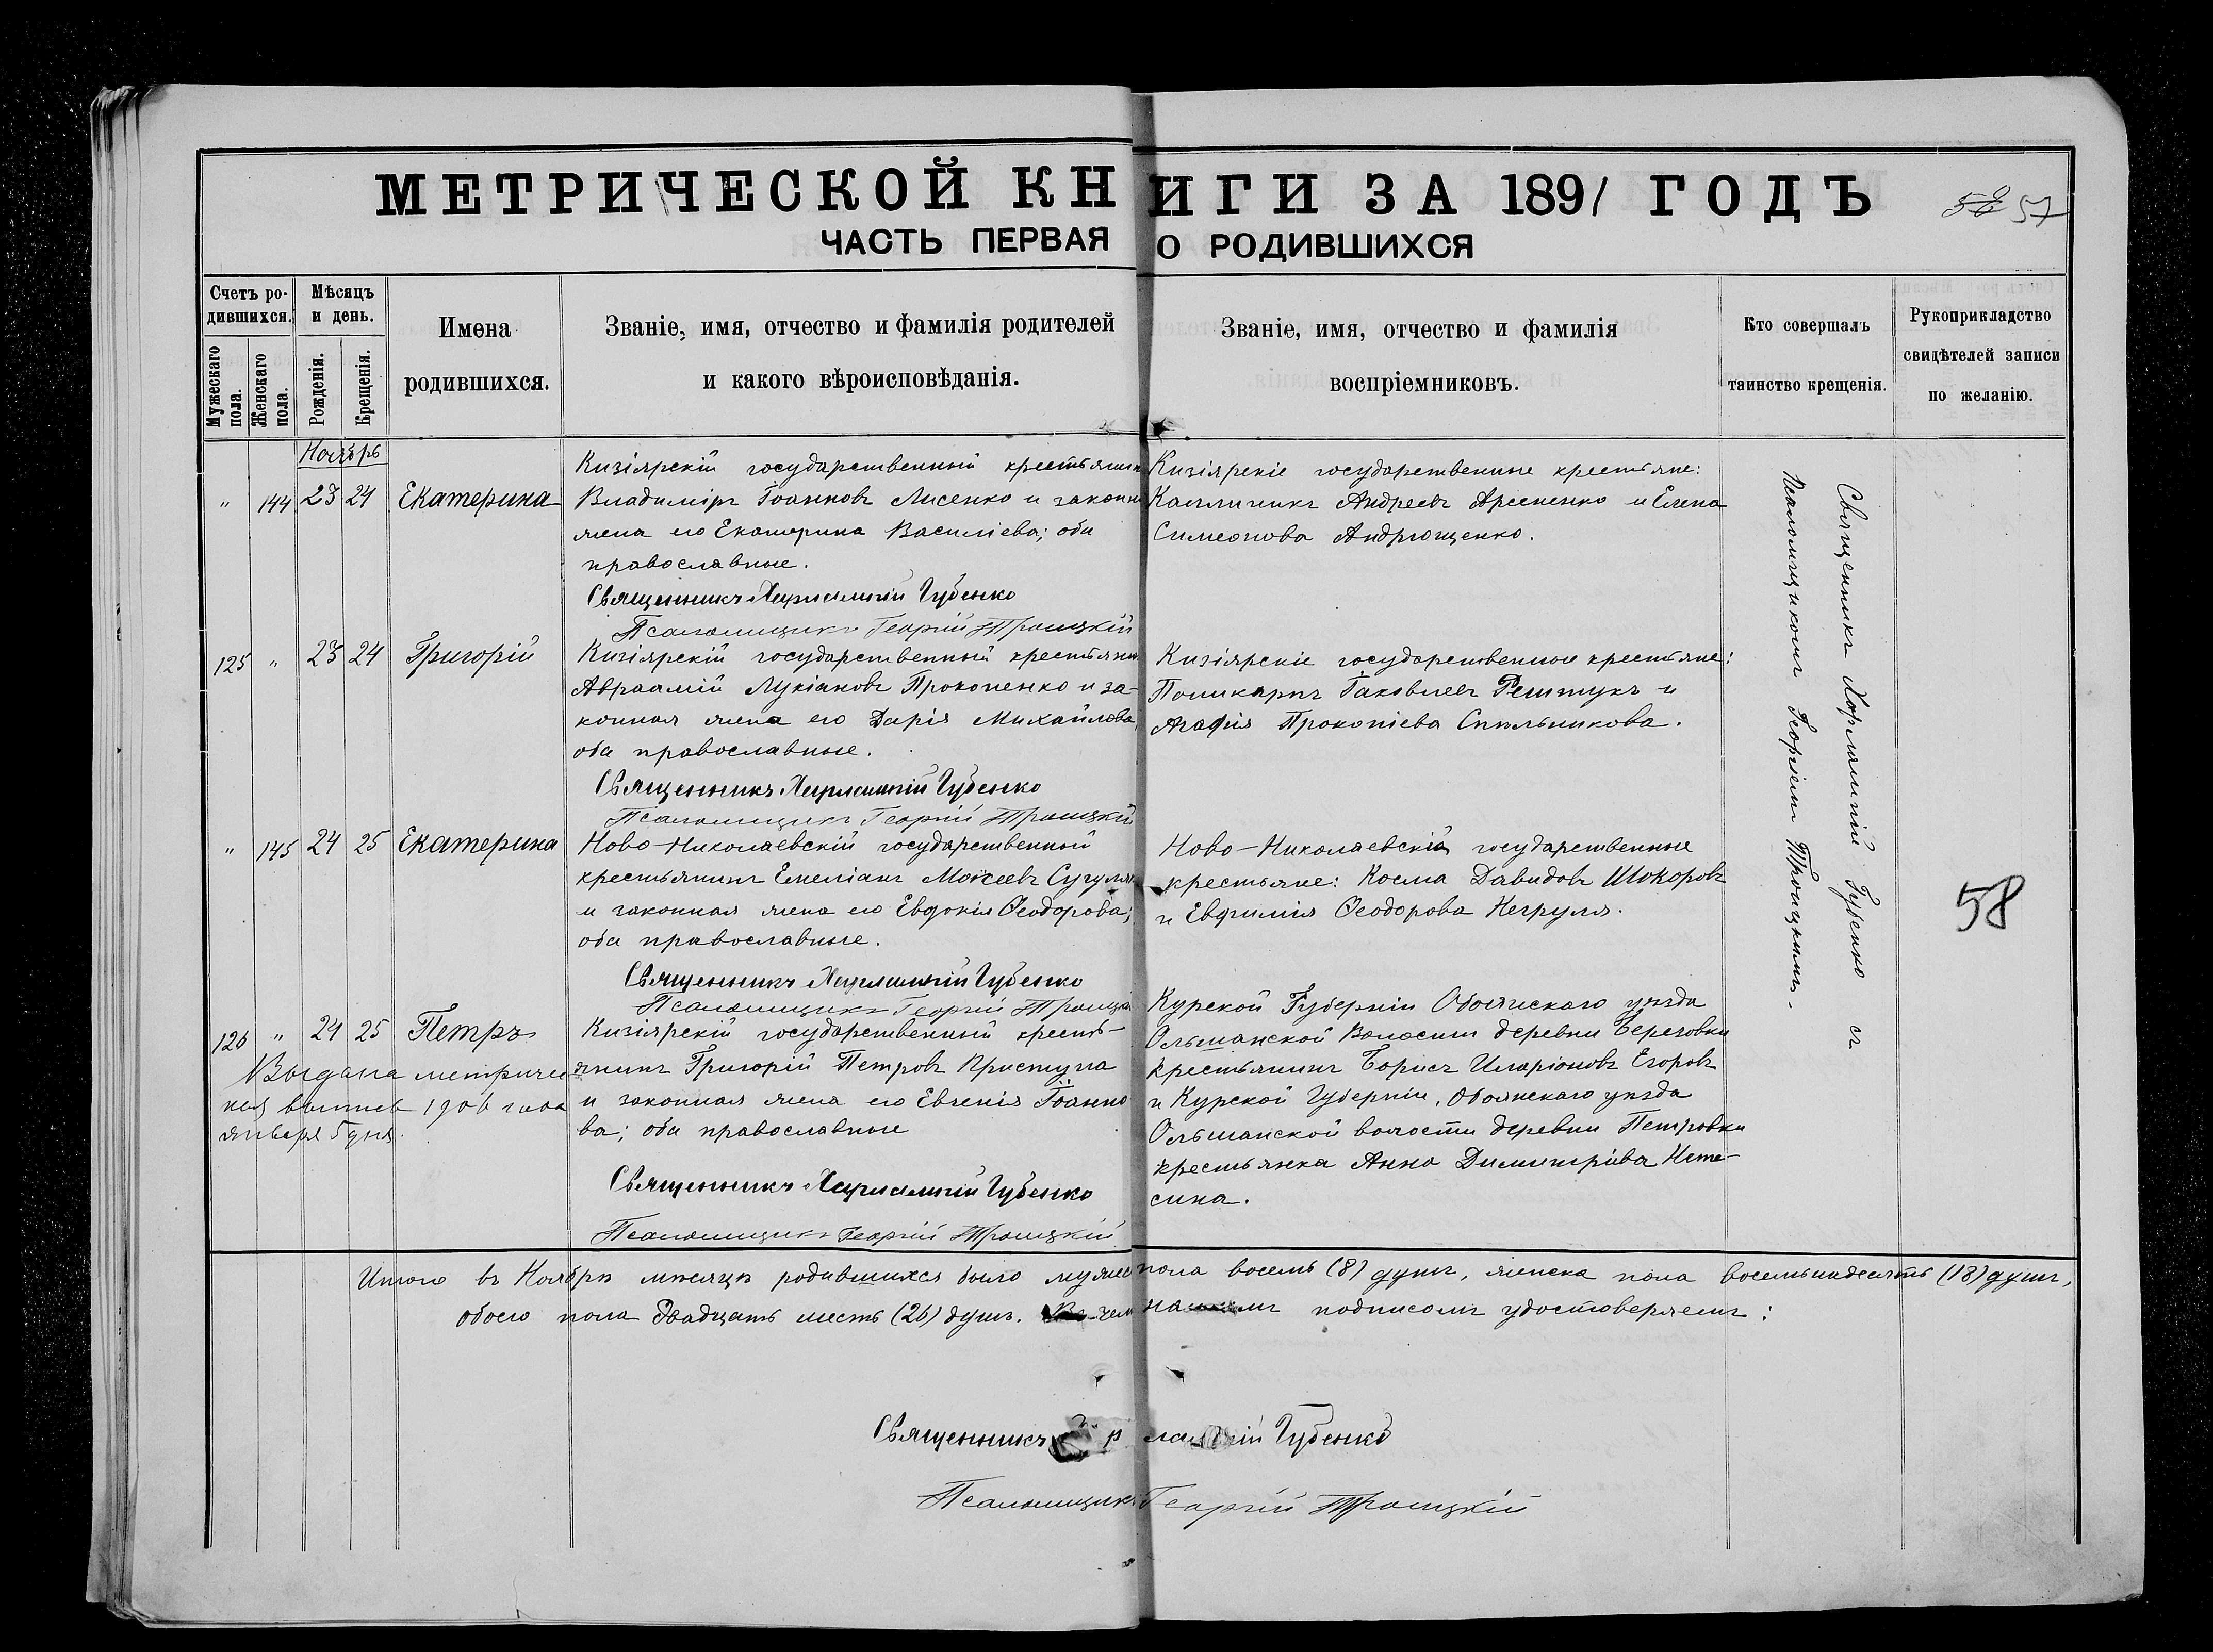 МЕТРИЧЕСКОЙ КНИГИ ЗА 1891 ГОДЪ
58 57
ЧАСТЬ ПЕРВАЯ О РОДИВШИХСЯ
Счетъ родившихся.
Мужескаго пола.
Женскаго пола.
Мѣсяцъ и день.
Рожденія.
Крещенія.
Имена родившихся.
Званіе, имя, отчество и фамилія родителей
и какого вѣроисповѣданія.
Званіе, имя, отчество и фамилія
воспріемниковъ.
Кто совершалъ
таинство крещенія.
Рукоприкладство
свидѣтелей записи
по желанію.
Ноябрь
" 144 23 24 Екатерина
Кизіярскій государственный крестьянинъ
Владиміръ Іоанновъ Лисенко и законная
жена его Екатерина Василіева; оба
православные.
Священникъ Харлампій Губенко
Псаломщикъ Георгій Троицкій
Кизіярскіе государственные крестьяне:
Каллиникъ Андреевъ Арсененко и Елена
Симеонова Андрющенко.
Священникъ Харлампій Губенко съ
Псаломщикомъ Георгіемъ Троицкимъ.
125 " 23 24 Григорій
Кизіярскій государственный крестьянинъ
Авраамій Лукіановъ Прокопенко и за-
конная жена его Дарія Михайлова,
оба православные.
Священникъ Харлампій Губенко
Псаломщикъ Георгій Троицкій
Кизіярскіе государственные крестьяне:
Поликарпъ Іаковлевъ Решткъ и
Агафія Прокопіева Сительникова.
" 145 24 25 Екатерина
Ново-Николаевскій государственный
крестьянинъ Емеліанъ Моѵсеевъ
и законная жена его Евдокія Ѳеодорова;
оба православные.
Священникъ Харлампій Губенко
Псаломщикъ Георгій Троицкій
Ново-Николаевскіе государственные
крестьяне: Косма Давидовъ Шокоровъ
и Евфимія Ѳеодорова Негруля.
58
126 " 24 25 Петръ
Выдана метричес
кая выпись 1906 года
января 5 дня.
Кизіярскій государственный кресть-
янинъ Григорій Петровъ Приступа
и законная жена его Евгенія Іоанно
ва; оба православные
Священникъ Харлампій Губенко
Псаломщикъ Георгій Троицкій
Курской Губерніи Обоянскаго уѣзда
Ольшанской Волости деревни Березовки
крестьянинъ Борисъ Иларіоновъ Егоровъ
и Курской Губерніи, Обоянскаго уѣзда
Ольшанской волости деревни Петровки
крестьянка Анна Димитріева Нете-
сина.
Итого въ Ноябрѣ мѣсяцѣ родившихся было мужес пола восемь (8) душъ, женска пола восемьнадесять (18) душъ,
обоего пола двадцать шесть (26) душъ. въ чемъ нашимъ подписомъ удостоверяемъ:
Священникъ Харлампій Губенко
Псаломщикъ Георгій Троицкій